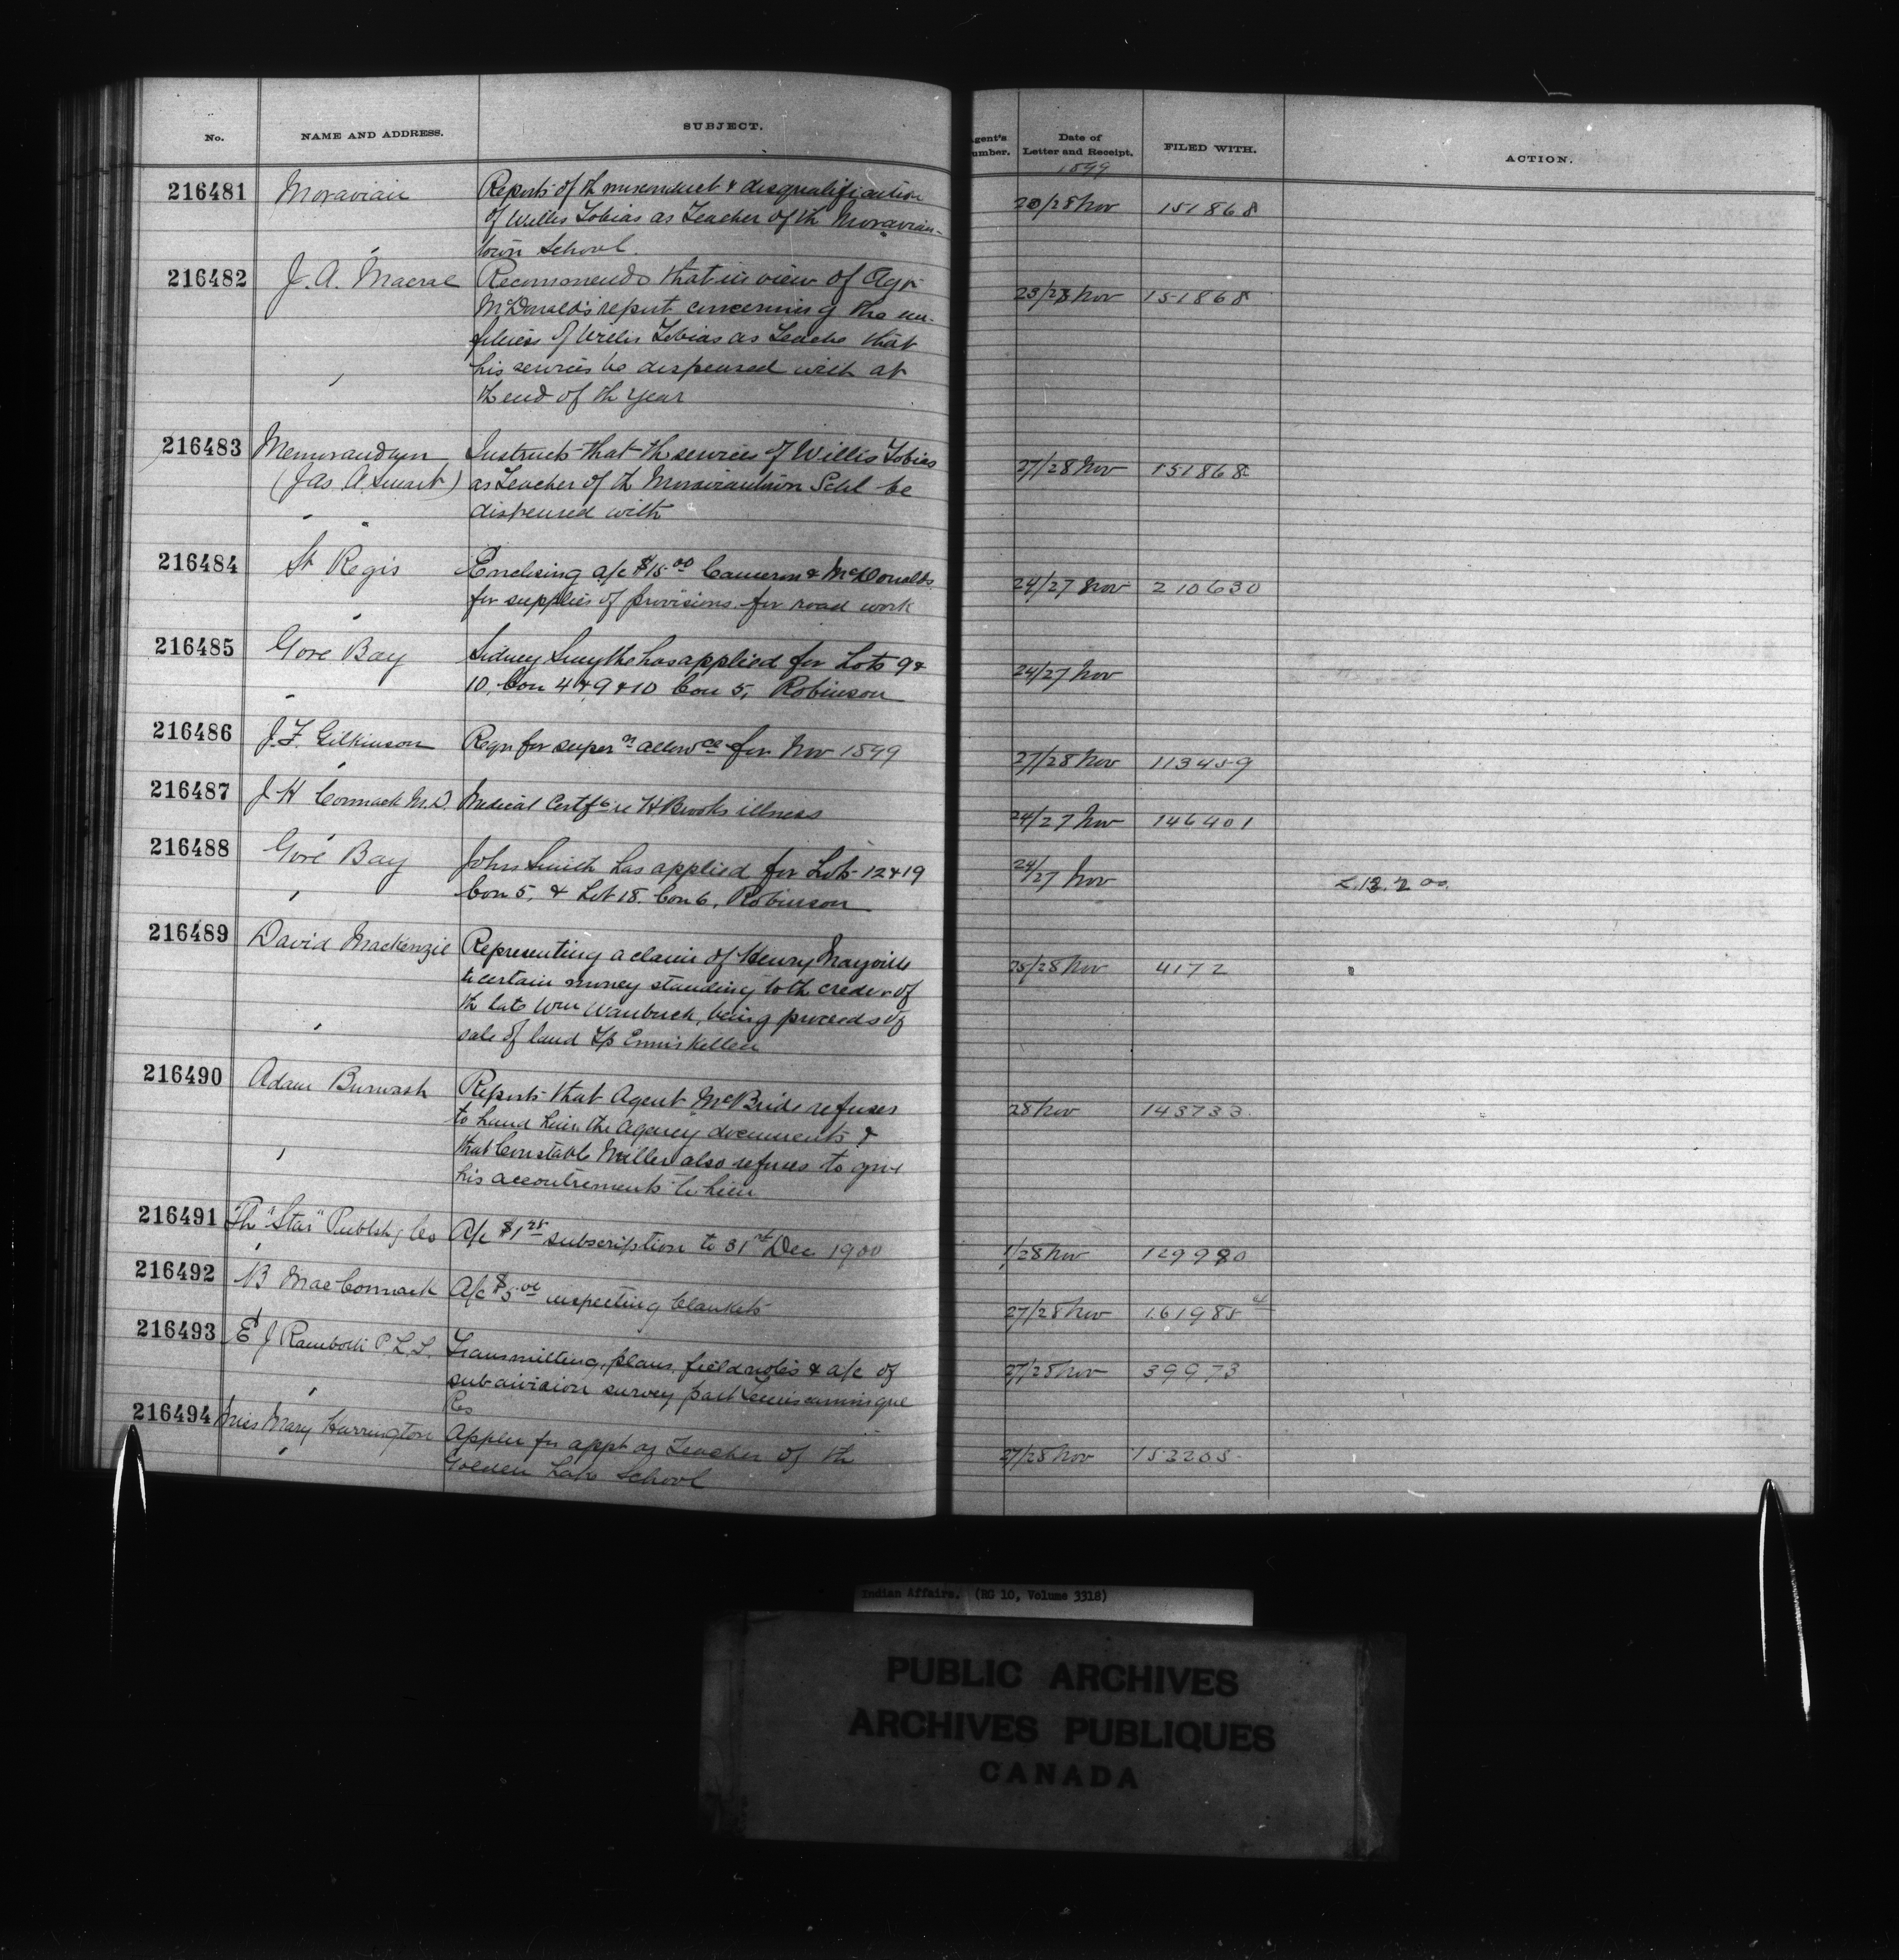 No. NAME AND ADDRESS. SUBJECT. Agent's Number. Date of Letter and Receipt. FILED WITH. ACTION.
1899
216481 Moravian Reports of th misconduct & disqualification 20/28 Nov 151868
of Willis Tobias as Teacher of th Moravian-
town School.
216482 J. A. Macrae Recommends that in view of Agt 23/28 Nov 151868
McDonald's report concerning the un-
fitness of Willis Tobias as Teache that
his services be dispensed with at
th end of th year
216483 Memorandum Instructs that th services of Willis Tobias 27/28 Nov 151868
(Jas A. Smart) as Teacher of th Moraviantown Schl be
dispensed with
216484 St Regis Enclosing a/c $15.00 Cameron & McDonalds 24/27 Nov 210630
for supplies of provisions for road work
216485 Gore Bay Sidney Smythe has applied for Lots 9 & 24/27 Nov
10, Con 4 & 9 & 10 Con 5, Robinson
216486 J. F. Gilkinson Reqn for supern allowce for Nov 1899 27/28 Nov 113459
216487 J H Cormack M.D. Medical Certfe re H Brooks illness 24/27 Nov 146401
216488 Gore Bay John Smith has applied for Lots 12 & 19 24/27 Nov
Con 5, & Lot 18. Con 6, Robinson
216489 David Mackenzie Representing a claim of Henry Mayville 25/28 Nov 4172
to certain money standing to th credit of
th late Wm Wanbuck, being proceeds of
sale of land Tp Enniskillen
216490 Adam Burwash Reports that Agent McBride refuses 28 Nov 143733
to hand him the Agency documents &
that Constable Miller also refuses to give
his accoutrements to him
216491 Th "Star" Publshg Co A/c $1.25 subscription to 31st Dec 1900 1/28 Nov 129990
216492 N MacCormack A/c $5.00 inspecting blankets 27/28 Nov 161985
216493 E J Rainboth P.L.S. Transmitting plans, field notes & a/c of 27/28 Nov 39973
subdivision survey part Temiscamingue
Res
216494 Miss Mary Harrington Applen for appt as Teacher of th 27/28 Nov 153205
Golden Lake School
Indian Affairs. (RG 10, Volume 3318)
PUBLIC ARCHIVES
ARCHIVES PUBLIQUES
CANADA